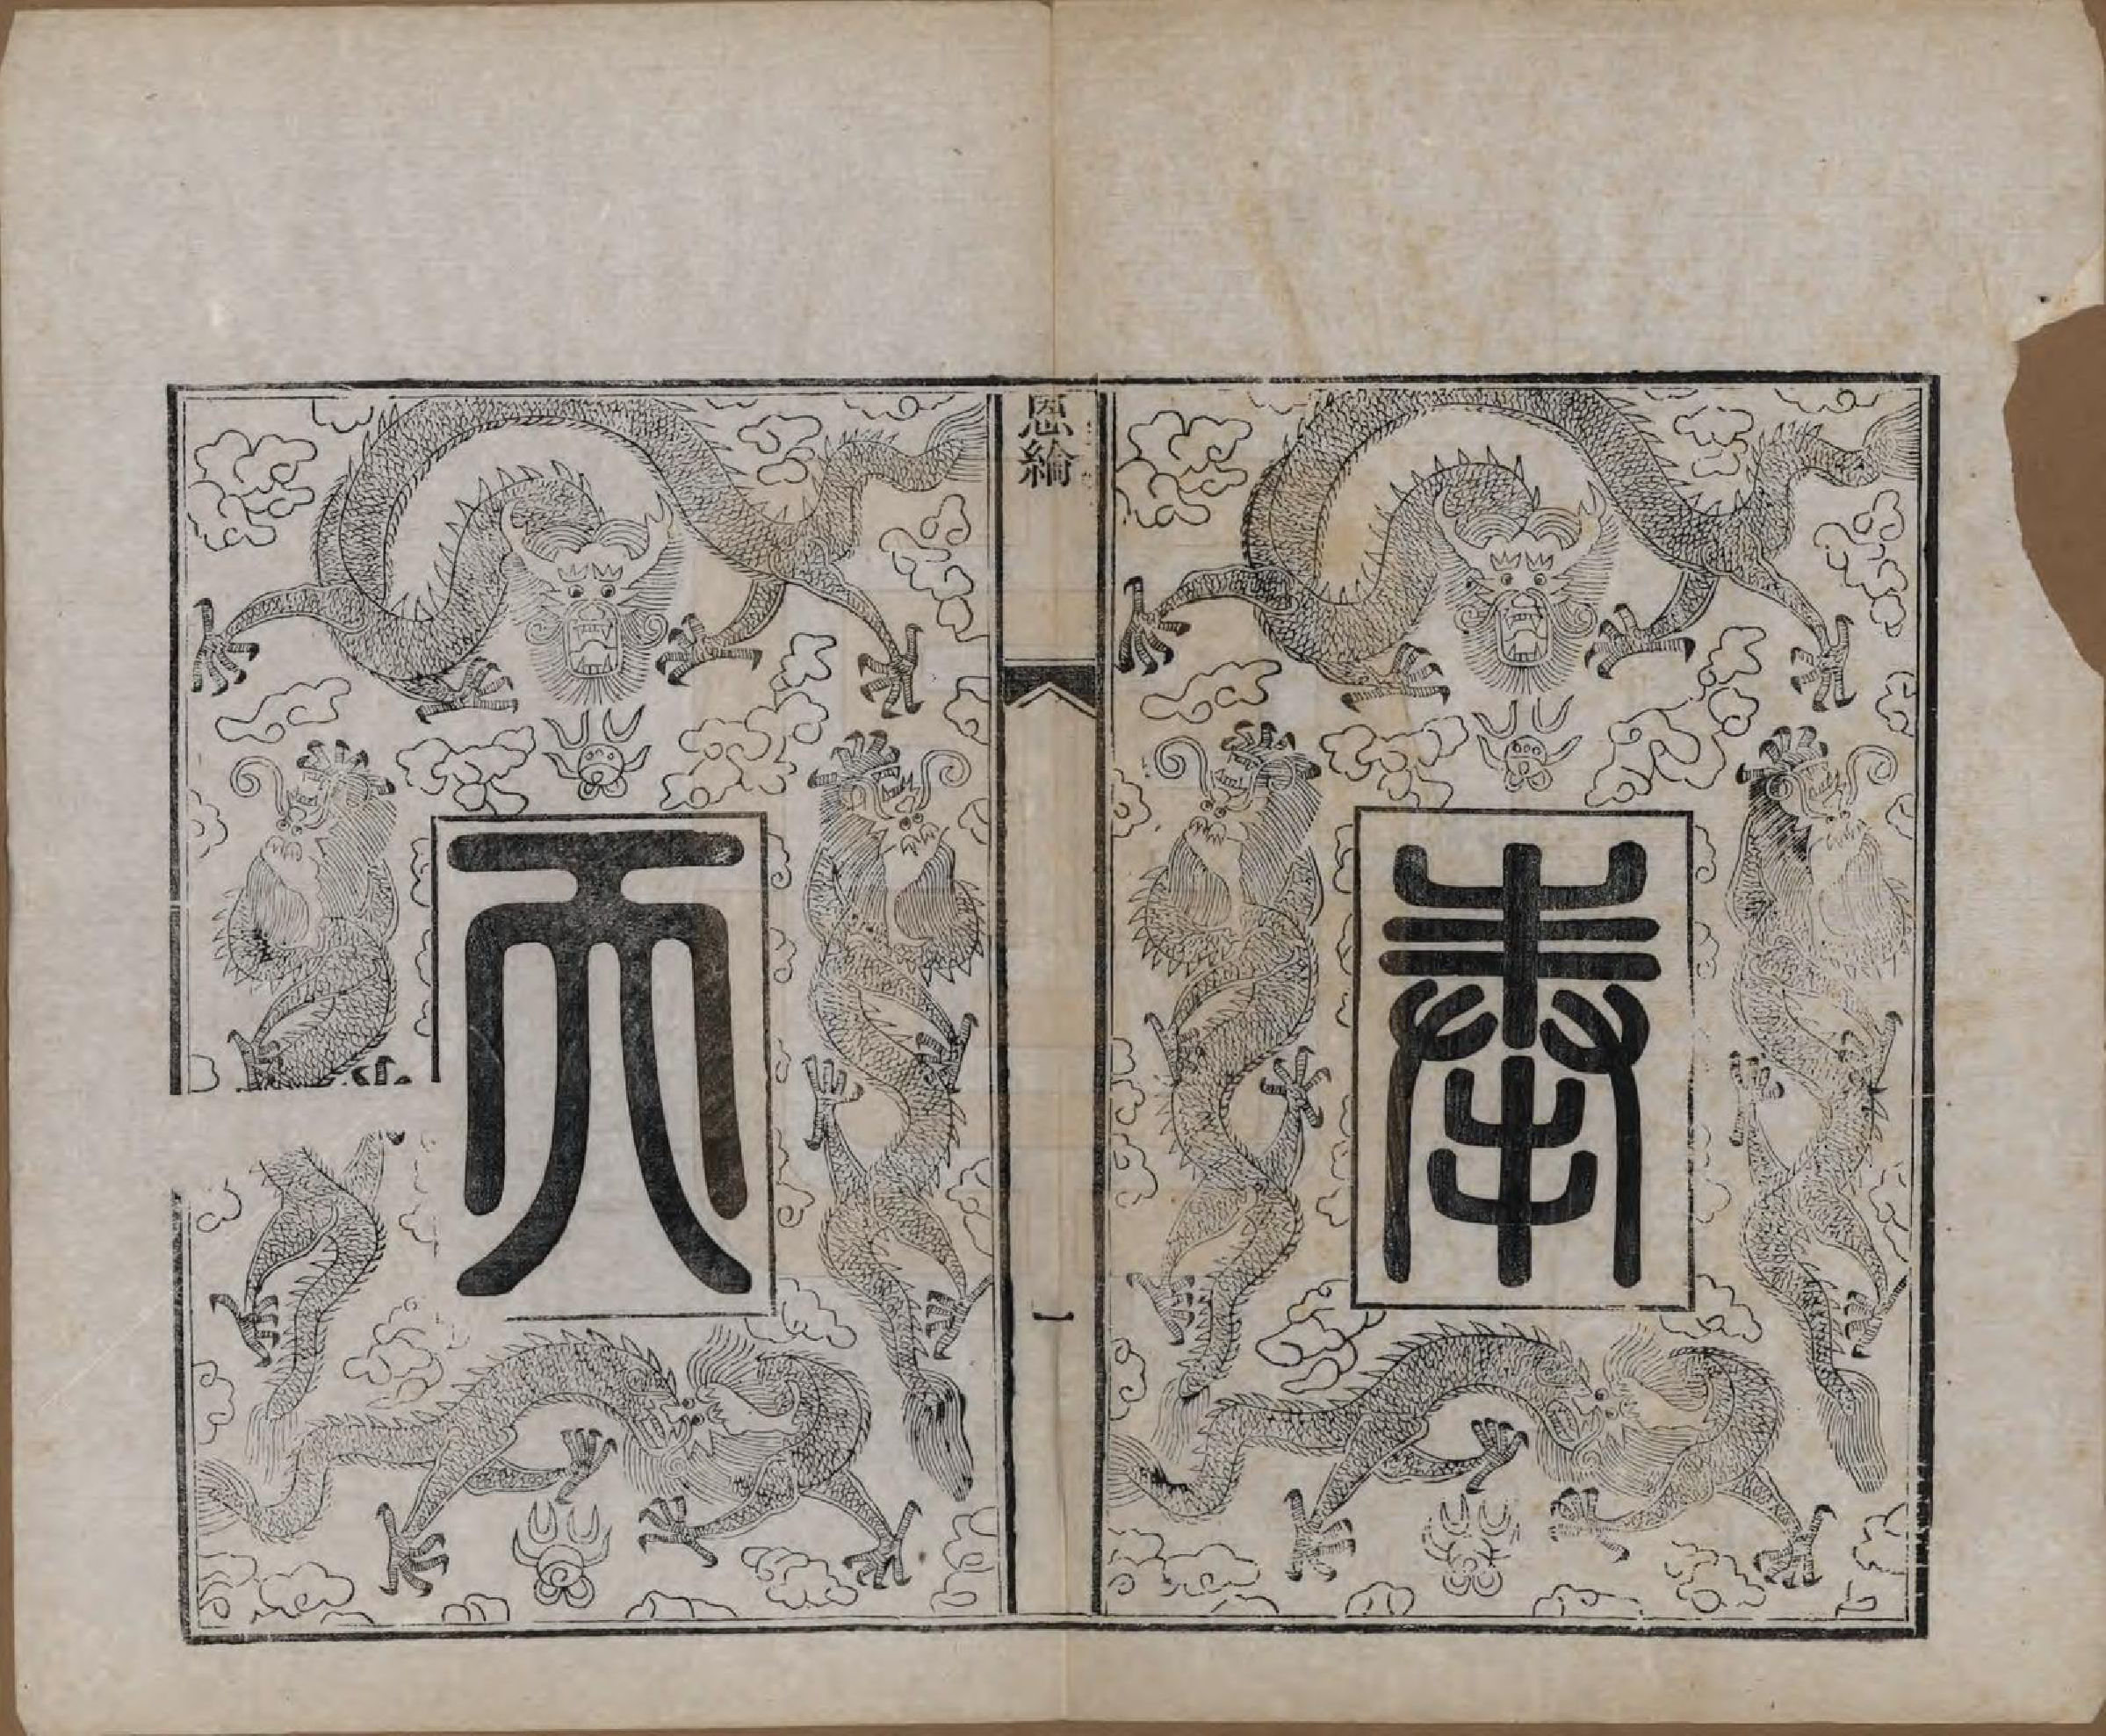 奉
恩綸
一
天